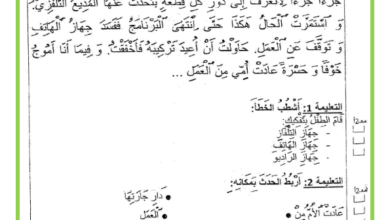 جُزْءًا جُزْءًا لِأَتَعَرَّفَ إِلَى دَوْرِ كُلِّ قِطْعَةٍ يَتَحَدَّثُ عَنْهَا الْمُذِيعُ التِّلْفَزِيُّ.
وَ اسْتَمَرَّتْ الْحَالُ هَكَذَا حَتَّى اِنْتَهَى الْبَرْنَامَجُ فَفَسَدَ جِهَازُ الْهَاتِفِ
وَ تَوَقَّفَ عَنِ الْعَمَلِ. حَاوَلْتُ أَنْ أُعِيدَ تَرْكِيبَهُ فَأَخْفَقْتُ. وَ فِيمَا أَنَا أَمُوجُ
خَوْفًا وَ حَسْرَةً عَادَتْ أُمِّي مِنَ الْعَمَلِ ...
التعليمة 1: أَشْطُبُ الْخَطَأَ:
قَامَ الطِّفْلُ بِتَفْكِيكِ:
- جِهَازِ التِّلْفَازِ
- جِهَازِ الْهَاتِفِ
- جِهَازِ الرَّادْيُو
مع2
التعليمة 2: أَرْبُطُ الْحَدَثَ بِمَكَانِهِ:
دَارِ جَارَتِهَا
عَادَتْ الْأُمُّ مِنْ
الْعَمَلِ
مع2